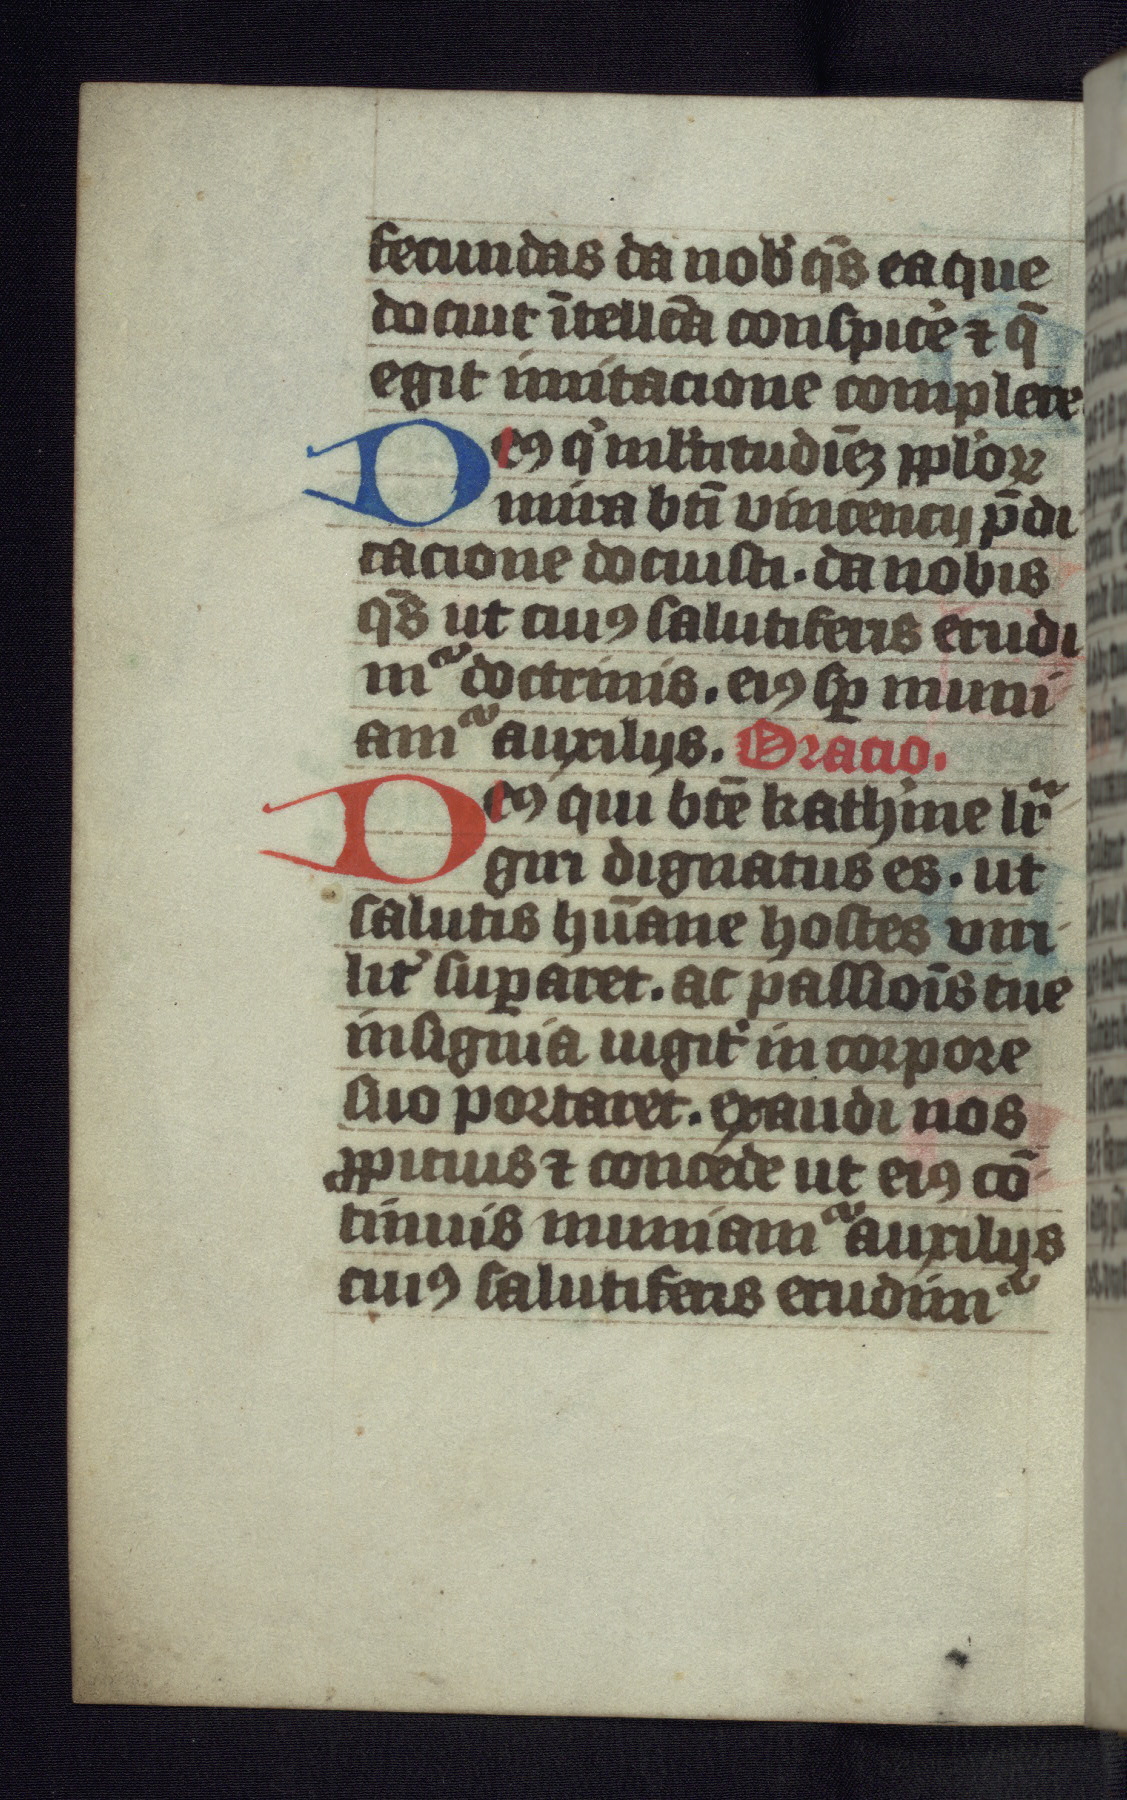 fecundas da nob̉ q̄s ea que
docuit ītellc̄a conspicẻ ⁊ q̄
egit imitacione complere
Deꝰ qͥ ml̉titudīeꝫ ꝓpl̉oꝝ
mira bt̄i vincencij p̄di
cacione docuisti. da nobis
q̄s ut cuiꝰ salutiferis erudi
m᷑ doctrinis. eiꝰ sꝑ muni
am᷑ auxilijs. Oracio.
Deꝰ qui bt̄e kath̉ine lr̄
giri dignatus es. ut
salutis hūane hostes viri
lit̉ suꝑaret. ac passioīs tue
insignia iugit̉ in corpore
suo portaret. exaudi nos
ꝓpicius ⁊ concede ut eiꝰ cō
tinuis muniam᷑ auxilijs
cuiꝰ salutiferis erudim᷑